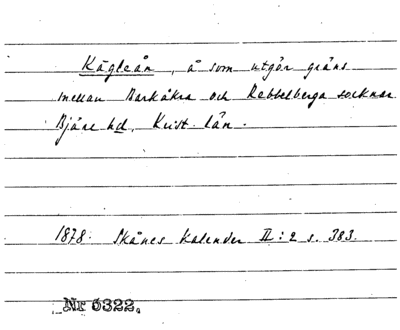 Kägleån, å som utgör gräns
mellan Barkåkra och Rebbelberga socknar
Bjäre hd, Krist. län.
1878. Skånes Kalender II:2 s. 383.
Nr 6322.